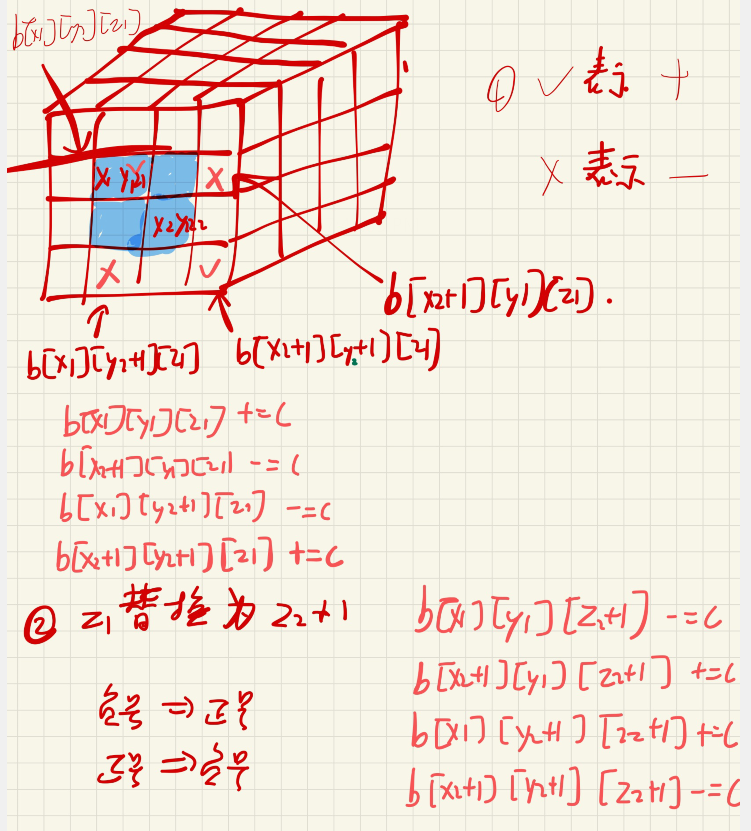 b[x1][y1][z1]
① ✓ 表示 +
× 表示 —
x1 y1 z1
×
x2 y2 z2
×
✓
b[x2+1][y1][z1].
b[x1][y2+1][z1]
b[x2+1][y2+1][z1]
b[x1][y1][z1] += c
b[x2+1][y1][z1] -= c
b[x1][y2+1][z1] -= c
b[x2+1][y2+1][z1] += c
② z1替换为 z2+1
负号 => 正号
正号 => 负号
b[x1][y1][z2+1] -= c
b[x2+1][y1][z2+1] += c
b[x1][y2+1][z2+1] += c
b[x2+1][y2+1][z2+1] -= c